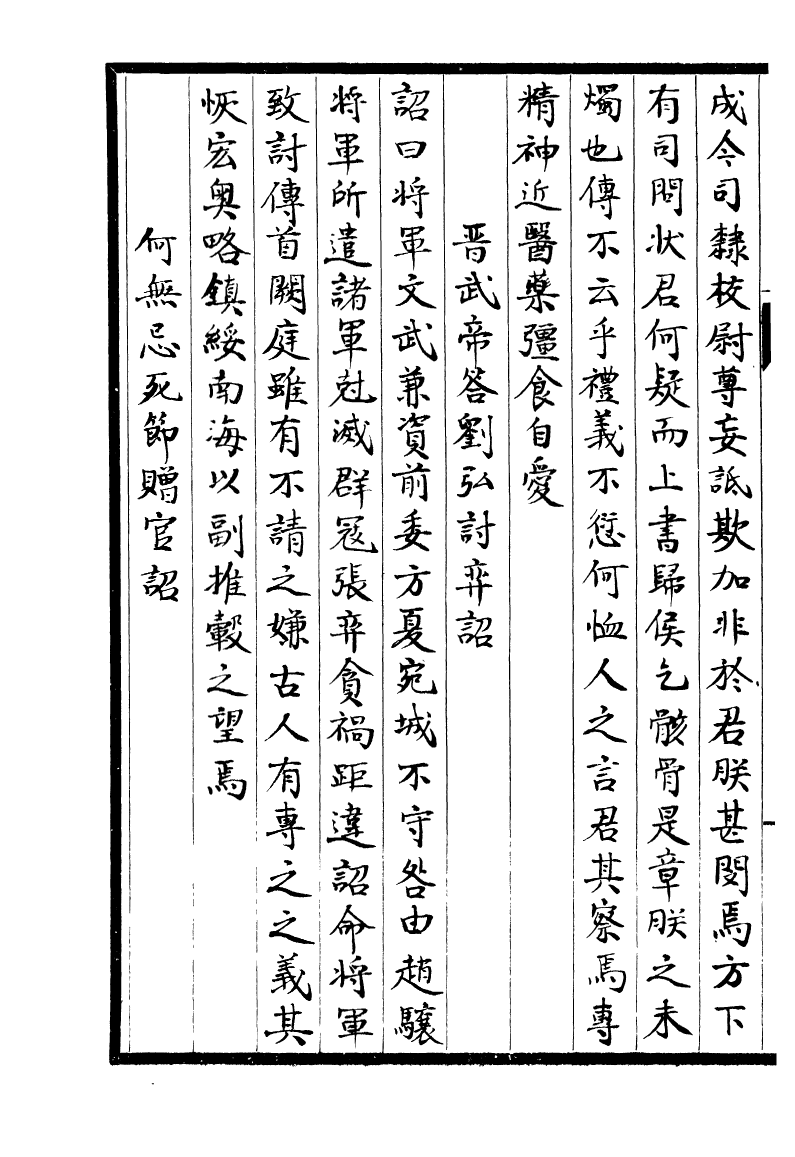 成今司隸校尉尊妄詆欺加非於君朕甚閔焉方下
有司問狀君何疑而上書歸侯乞骸骨是章朕之未
燭也傳不云乎禮義不愆何恤人之言君其察焉專
精神近醫藥彊食自愛
晋武帝答劉弘討弈詔
詔曰将軍文武兼資前委方夏宛城不守咎由趙驤
将軍所遣諸軍尅滅群寇張弈貪禍距違詔命将軍
致討傳首闕庭雖有不請之嫌古人有專之之義其
恢宏奥略鎮綏南海以副推轂之望焉
何無忌死節贈官詔